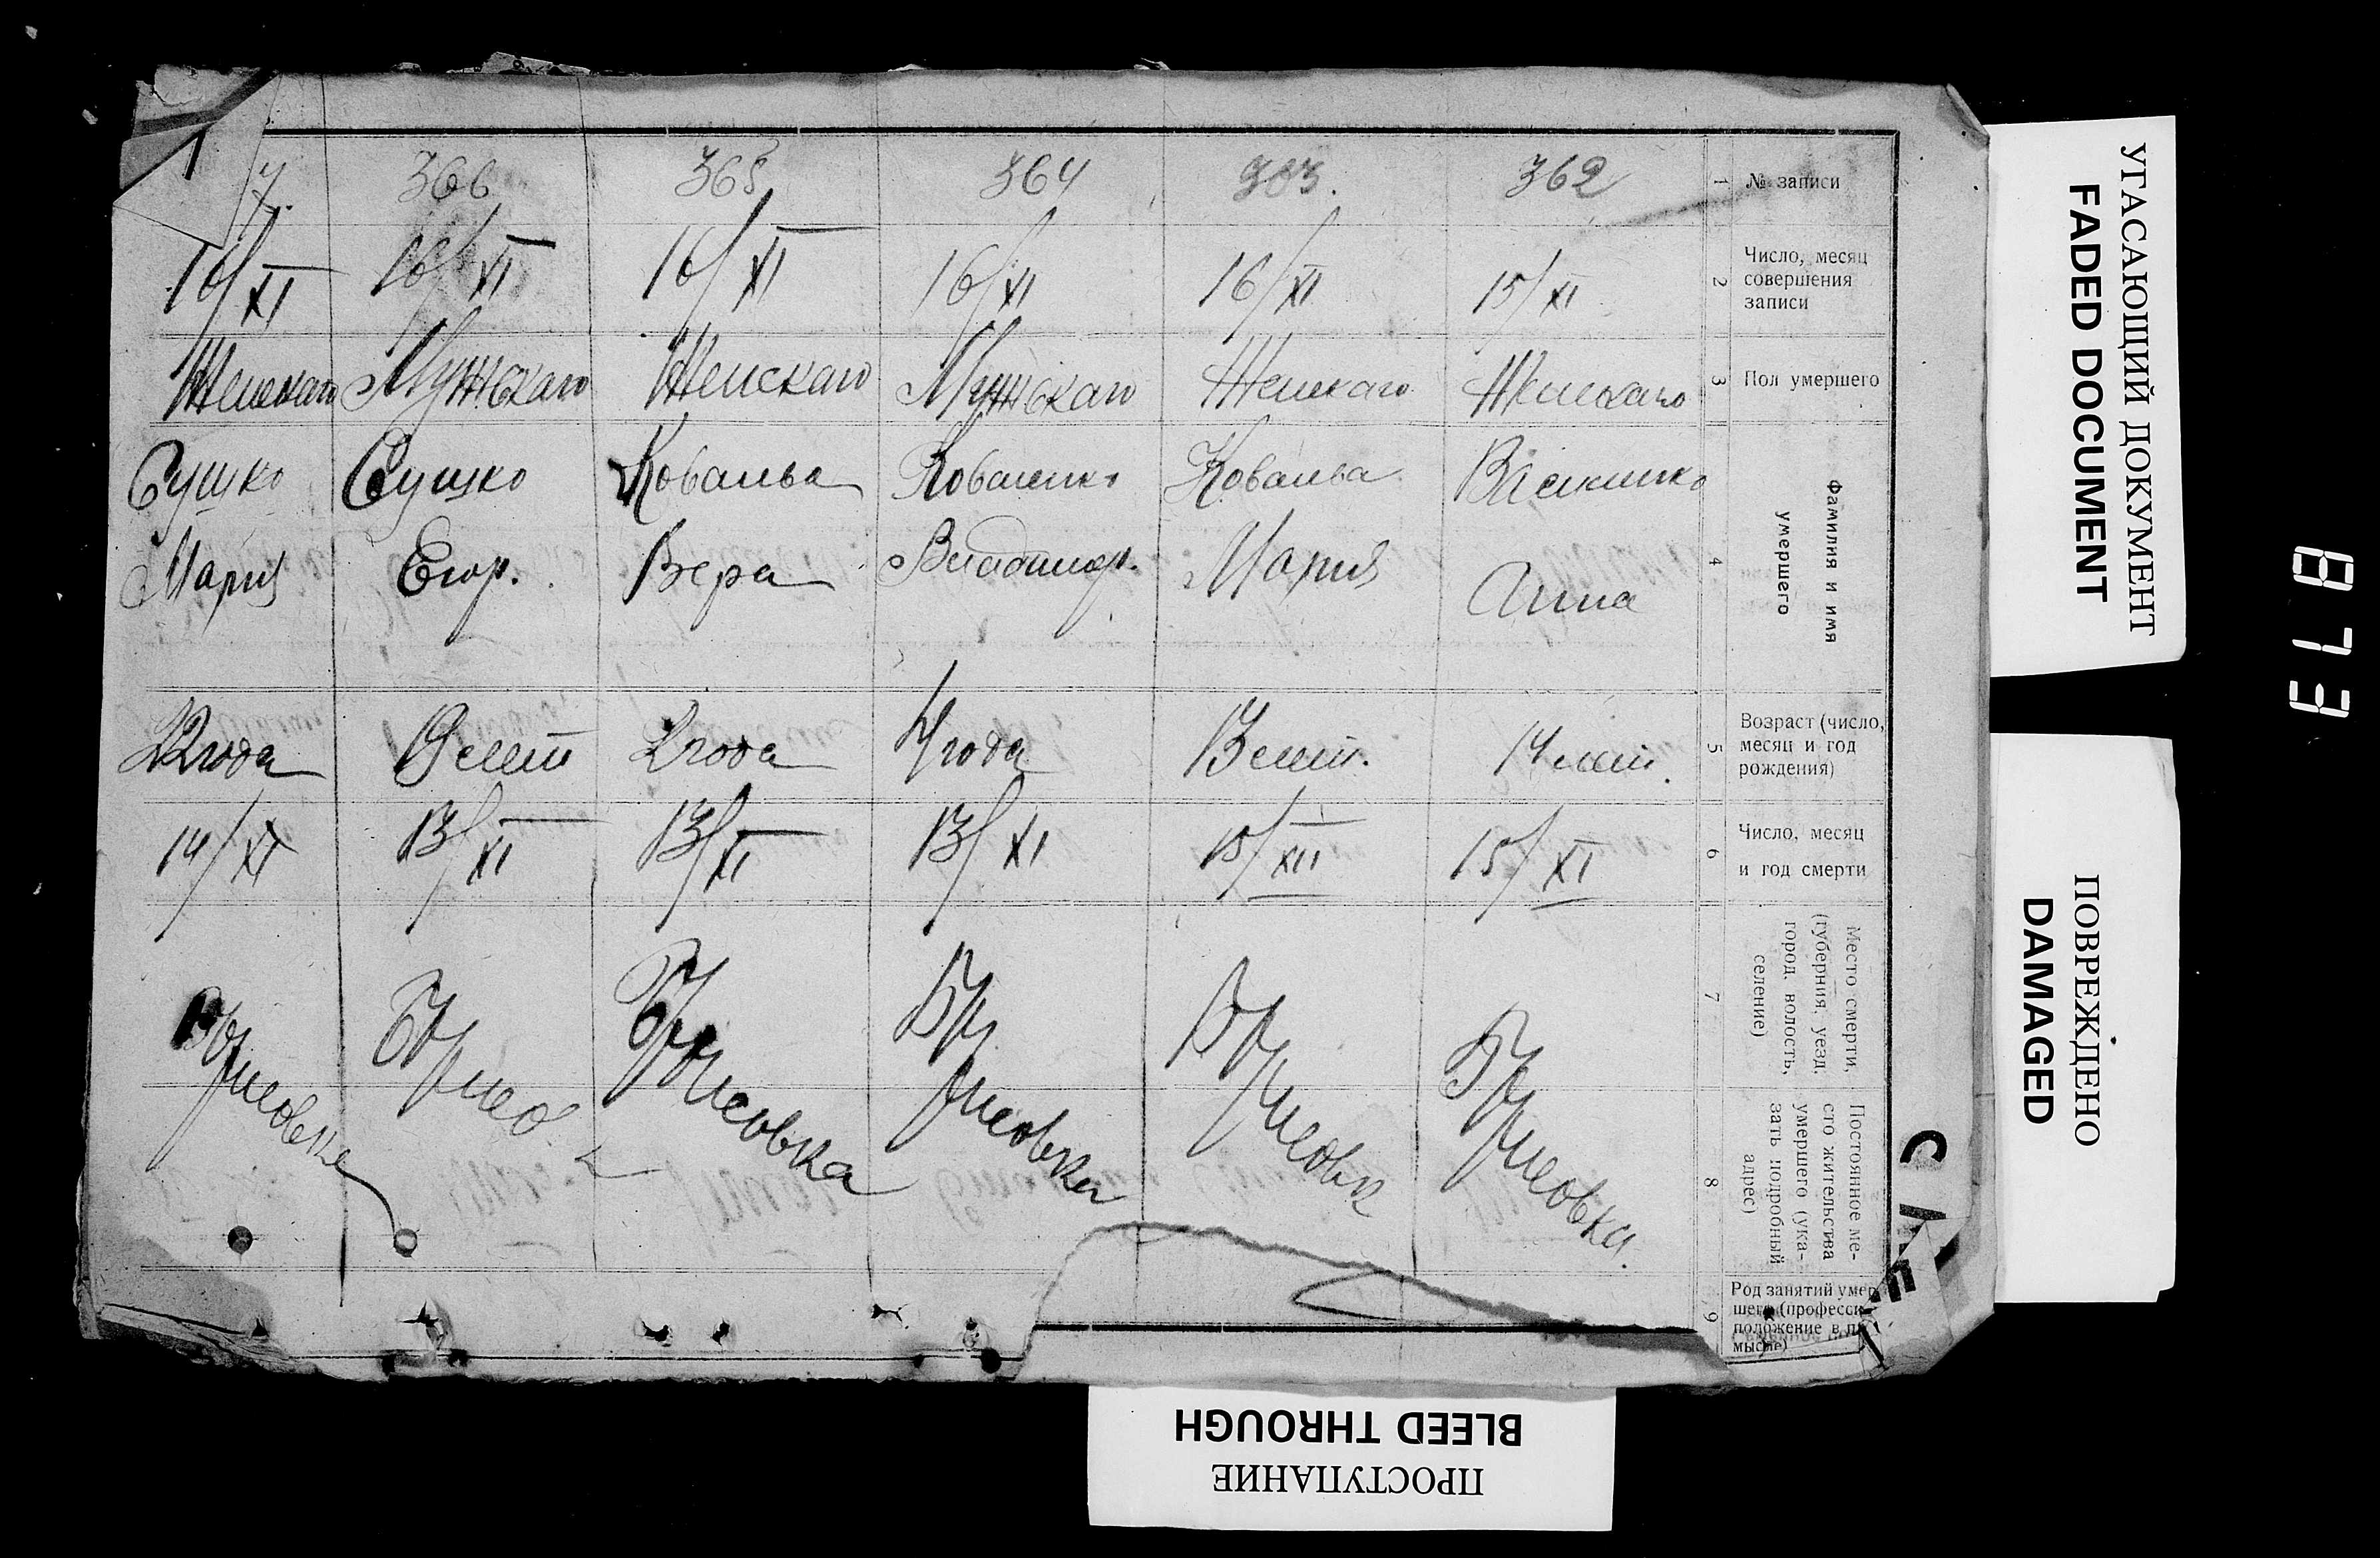 7.
366
365
364
363.
362
1
№ записи
16/XI
16/XI
16/XI
16/XI
16/XI
15/XI
2
Число, месяц
совершения
записи
Женскаго
Мужскаго
Женскаго
Мужскаго
Женскаго
Женскаго
3
Пол умершего
Сушко
Сушко
Ковальва
Коваленко
Ковальва
Мария
Егор.
Вера
Владимир.
Мария
Анна
4
Фамилия и имя
умершего
22 года
9 лет
2 года
4 года
13 лет.
14 лет.
5
Возраст (число,
месяц и год
рождения)
14/XI
13/XI
13/XI
13/XI
15/XII
15/XI
6
Число, месяц
и год смерти
7
Место смерти,
(губерния, уезд,
город, волость,
селение)
8
Постоянное ме-
сто жительства
умершего (ука-
зать подробный
адрес)
9
Род занятий умер
шего (професси
положение в п
мысле)
УГАСАЮЩИЙ ДОКУМЕНТ
FADED DOCUMENT
ПОВРЕЖДЕНО
DAMAGED
ПРОСТУПАНИЕ
BLEED THROUGH